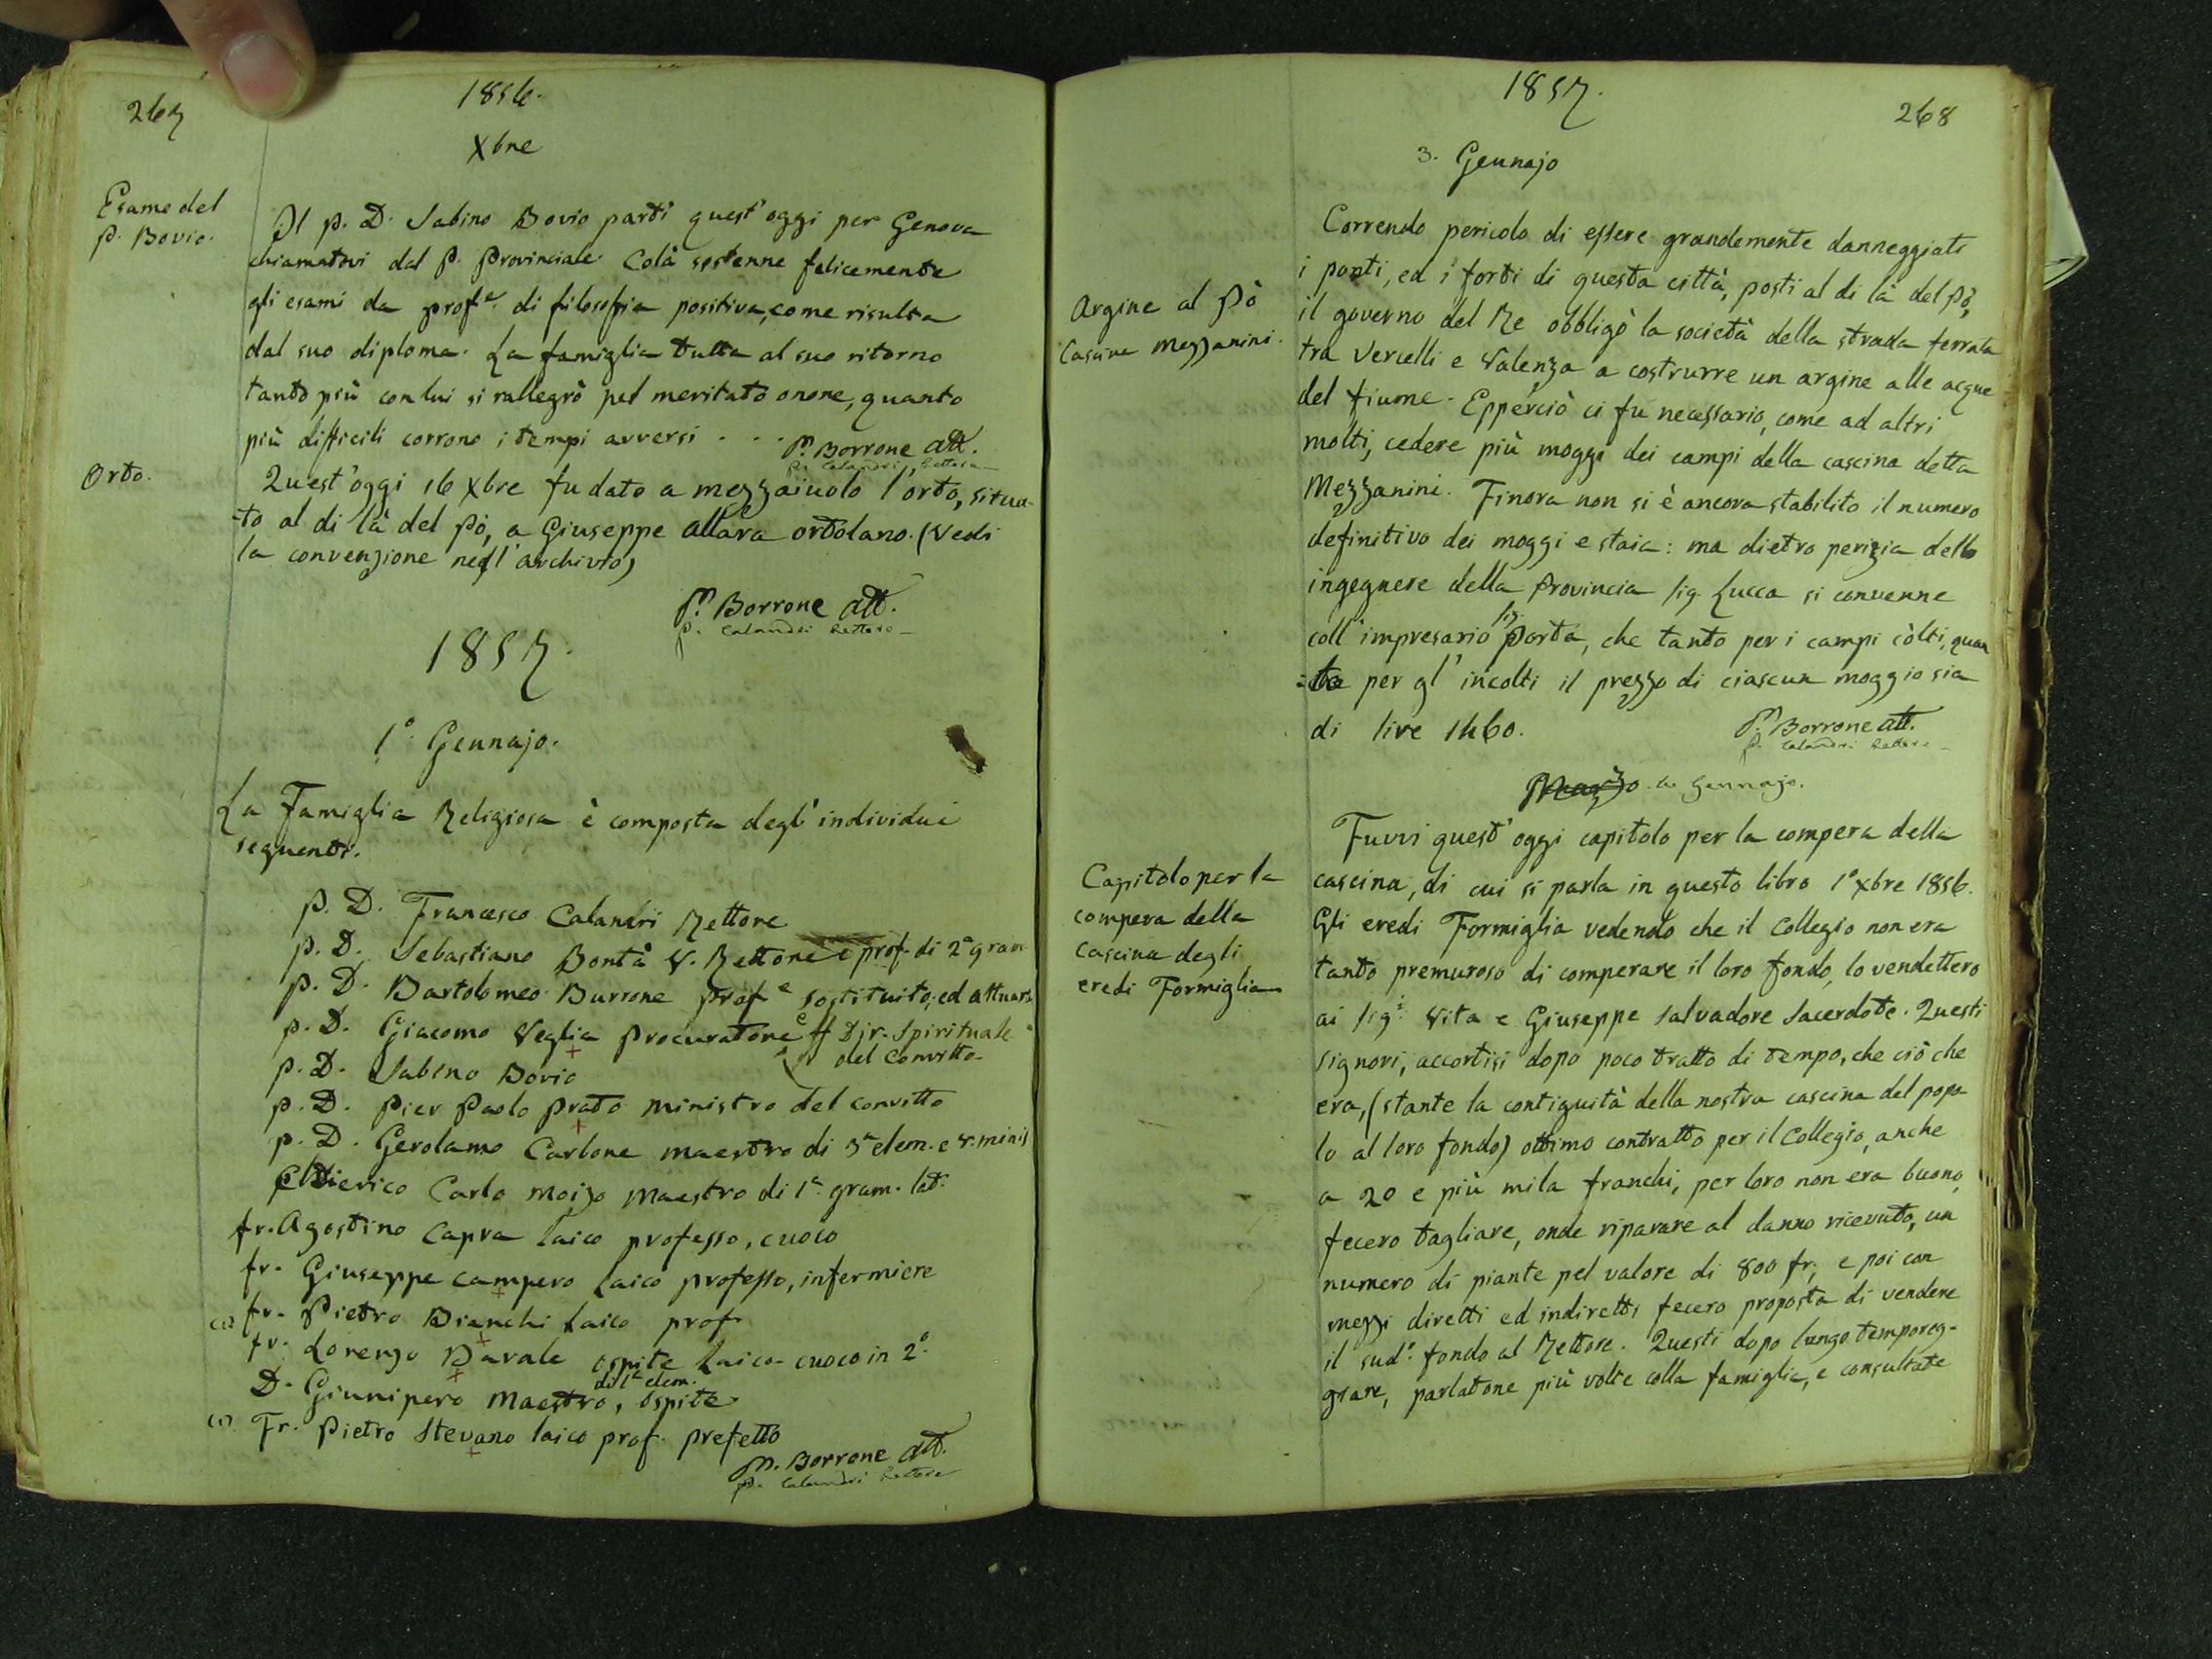 267
1856.
Xbre
Esame del
P. Bovio.
Il P. D. Sabino Bovio partì quest'oggi per Genova
chiamatovi dal P. Provinciale. Colà sostenne felicemente
gli esami da prof.e di filosofia positiva, come risulta
dal suo diploma. La famiglia tutta al suo ritorno
tanto più con lui si rallegrò pel meritato onore, quanto
più difficili corrono i tempi avversi . . . P. Borrone att.
P. Calandri Rettore
Orto.
Quest'oggi 16 Xbre fu dato a mezzaiuolo l'orto, situa-
-to al di là del Pò, a Giuseppe Allara ortolano. (Vedi
la convenzione nell'archivio)
P. Borrone att.
P. Calandri Rettore
1857.
1° Gennajo.
La Famiglia Religiosa è composta degl'individui
seguenti.
P. D. Francesco Calandri Rettore
P. D. Sebastiano Bontà V. Rettore e prof. di 2a gram
P. D. Bartolomeo Burrone Prof.e sostituito, ed attuaro
P. D. Giacomo Veglia Procuratore e Dir. Spirituale
del Convitto
P. D. Sabino Bovio
P. D. Pier Paolo Prato Ministro del convitto
P. D. Gerolamo Carbone maestro di 3a elem. e v. minis
Chierico Carlo Moizo Maestro di 1a gram. lat.
fr. Agostino Capra laico professo, cuoco
fr. Giuseppe Campero laico professo, infermiere
fr. Pietro Bianchi laico prof.
fr. Lorenzo Davale ospite laico cuoco in 2°
D. Giunipero Maestro di 1a elem., ospite
(1) Fr. Pietro Stevano laico prof. prefetto
P. Borrone att.
P. Calandri Rettore
1857.
268
3. Gennajo
Argine al Pò
Cascina Mezzanini.
Correndo pericolo di essere grandemente danneggiati
i ponti, ed i forti di questa città, posti al di là del Pò,
il governo del Re obbligò la società della strada ferrata
tra Vercelli e Valenza a costrurre un argine alle acque
del fiume. Epperciò ci fu necessario, come ad altri
molti, cedere più moggi dei campi della cascina detta
Mezzanini. Finora non si è ancora stabilito il numero
definitivo dei moggi e staia: ma dietro perizia dello
ingegnere della Provincia sig. Lucca si convenne
coll'impresario sig. Porta, che tanto per i campi còlti, quan
=to per gl'incolti il prezzo di ciascun moggio sia
di lire 1460.
P. Borrone att.
P. Calandri Rettore
Marzo Gennajo.
Capitolo per la
compera della
cascina degli
eredi Formiglia
Fuvvi quest'oggi capitolo per la compera della
cascina, di cui si parla in questo libro 1° Xbre 1856.
Gli eredi Formiglia vedendo che il Collegio non era
tanto premuroso di comperare il loro fondo, lo vendettero
ai sig.i Vita e Giuseppe Salvadore Sacerdote. Questi
signori, accortisi dopo poco tratto di tempo, che ciò che
era, (stante la contiguità della nostra cascina del popo-
lo al loro fondo) ottimo contratto per il Collegio, anche
a 20 e più mila franchi, per loro non era buono,
fecero tagliare, onde riparare al danno ricevuto, un
numero di piante pel valore di 800 fr., e poi con
mezzi diretti ed indiretti fecero proposta di vendere
il sud.o fondo al Rettore. Questi dopo lungo temporeg-
giare, parlatone più volte colla famiglia, e consultate